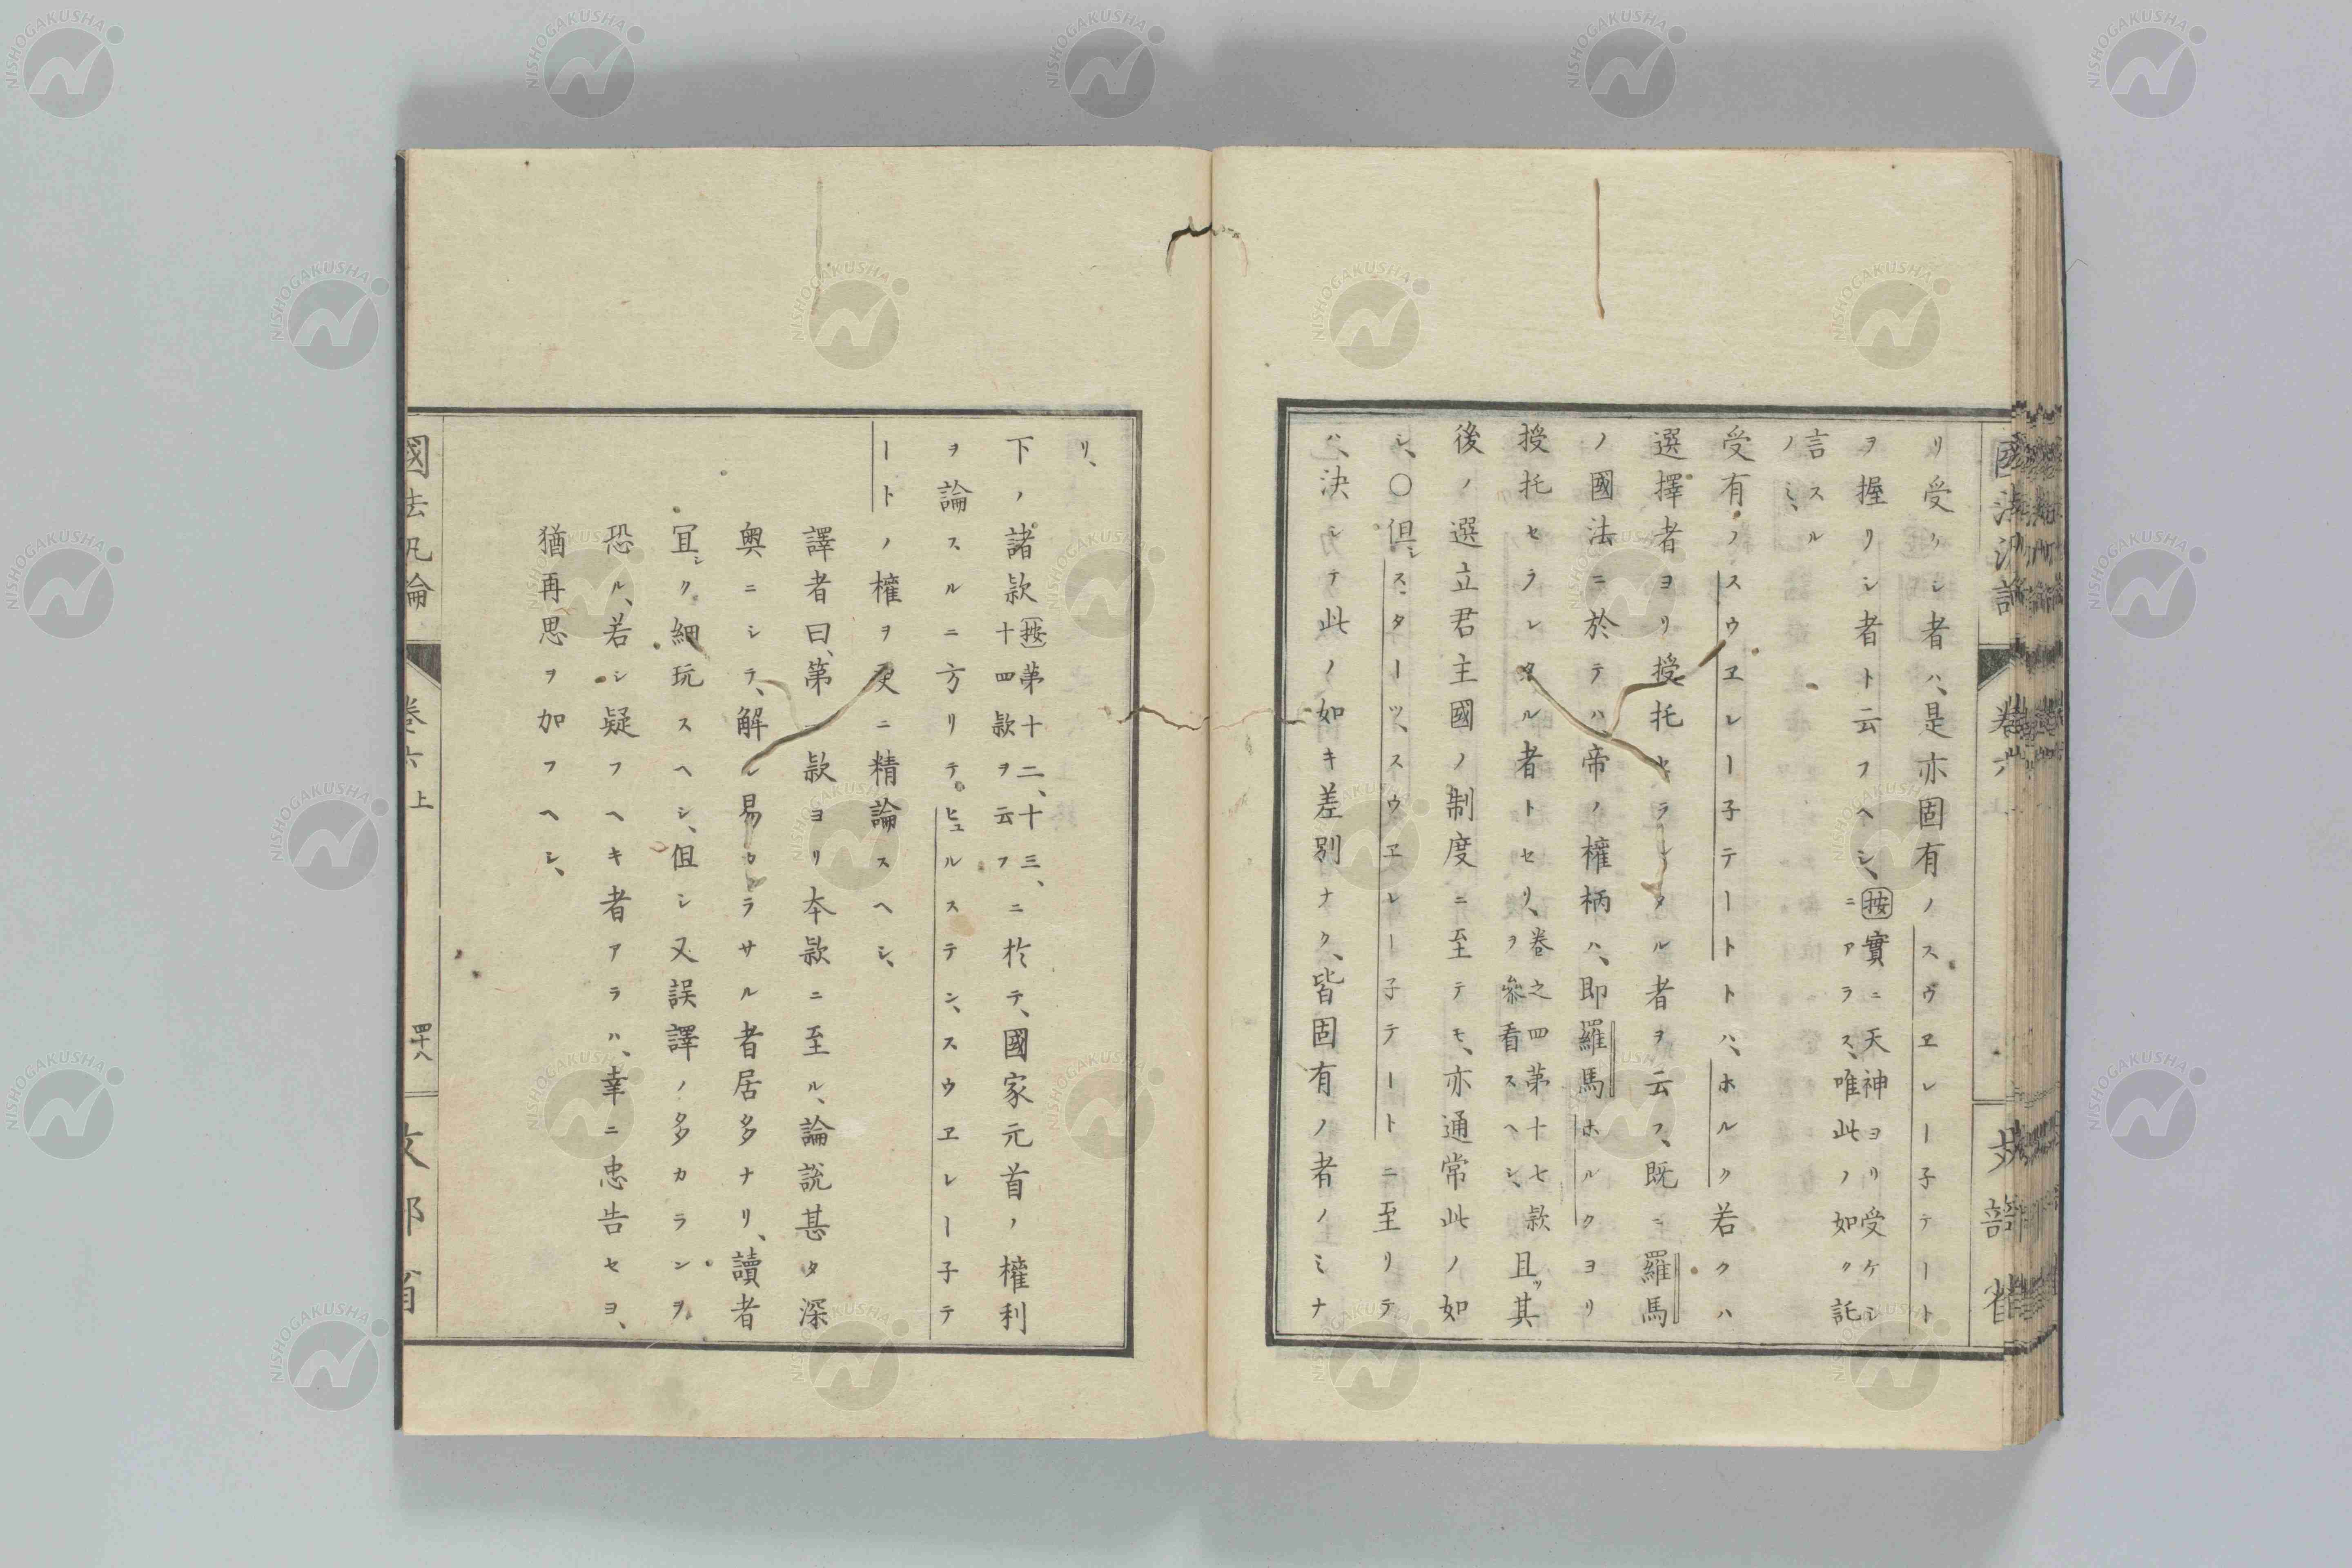 リ受クシ者ハ、是亦固有ノスウヱレー子テート
ヲ握リシ者ト云フヘシ、按實ニ天神ヨリ受ケシ
ニアラス、唯此ノ如ク託
言スル
ノミ、
受有ノスウヱレー子テートトハ、ホルク若クハ
選擇者ヨリ授托セラレタル者ヲ云フ、既ニ羅馬
ノ國法ニ於テハ帝ノ權柄ハ、即羅馬ホルクヨリ
授托セラレタル者トセリ、卷之四第十七款
ヲ參看スヘシ、且ツ其
後ノ選立君主國ノ制度ニ至テモ、亦通常此ノ如
シ、〇但シスターツ、スウヱレー子テートニ至リテ
ハ、決シテ此ノ如キ差別ナク、皆固有ノ者ノミナ
國法汎論
卷六
リ、
下ノ諸款按第十二、十三、
十四款ヲ云フニ於テ、國家元首ノ權利
ヲ論スルニ方リテ、ヒュルステン、スウヱレー子テ
ートノ權ヲ更ニ精論スヘシ、
譯者曰、第一款ヨリ本款ニ至ル、論説甚タ深
奥ニシテ、解シ易カラサル者居多ナリ、讀者
冝シク細玩スヘシ、但シ又誤譯ノ多カランヲ
恐ル、若シ疑フヘキ者アラハ、幸ニ忠告セヨ、
猶再思ヲ加フヘシ、
國法汎論
卷六上
四十八
文部省
NISHOGAKUSHA